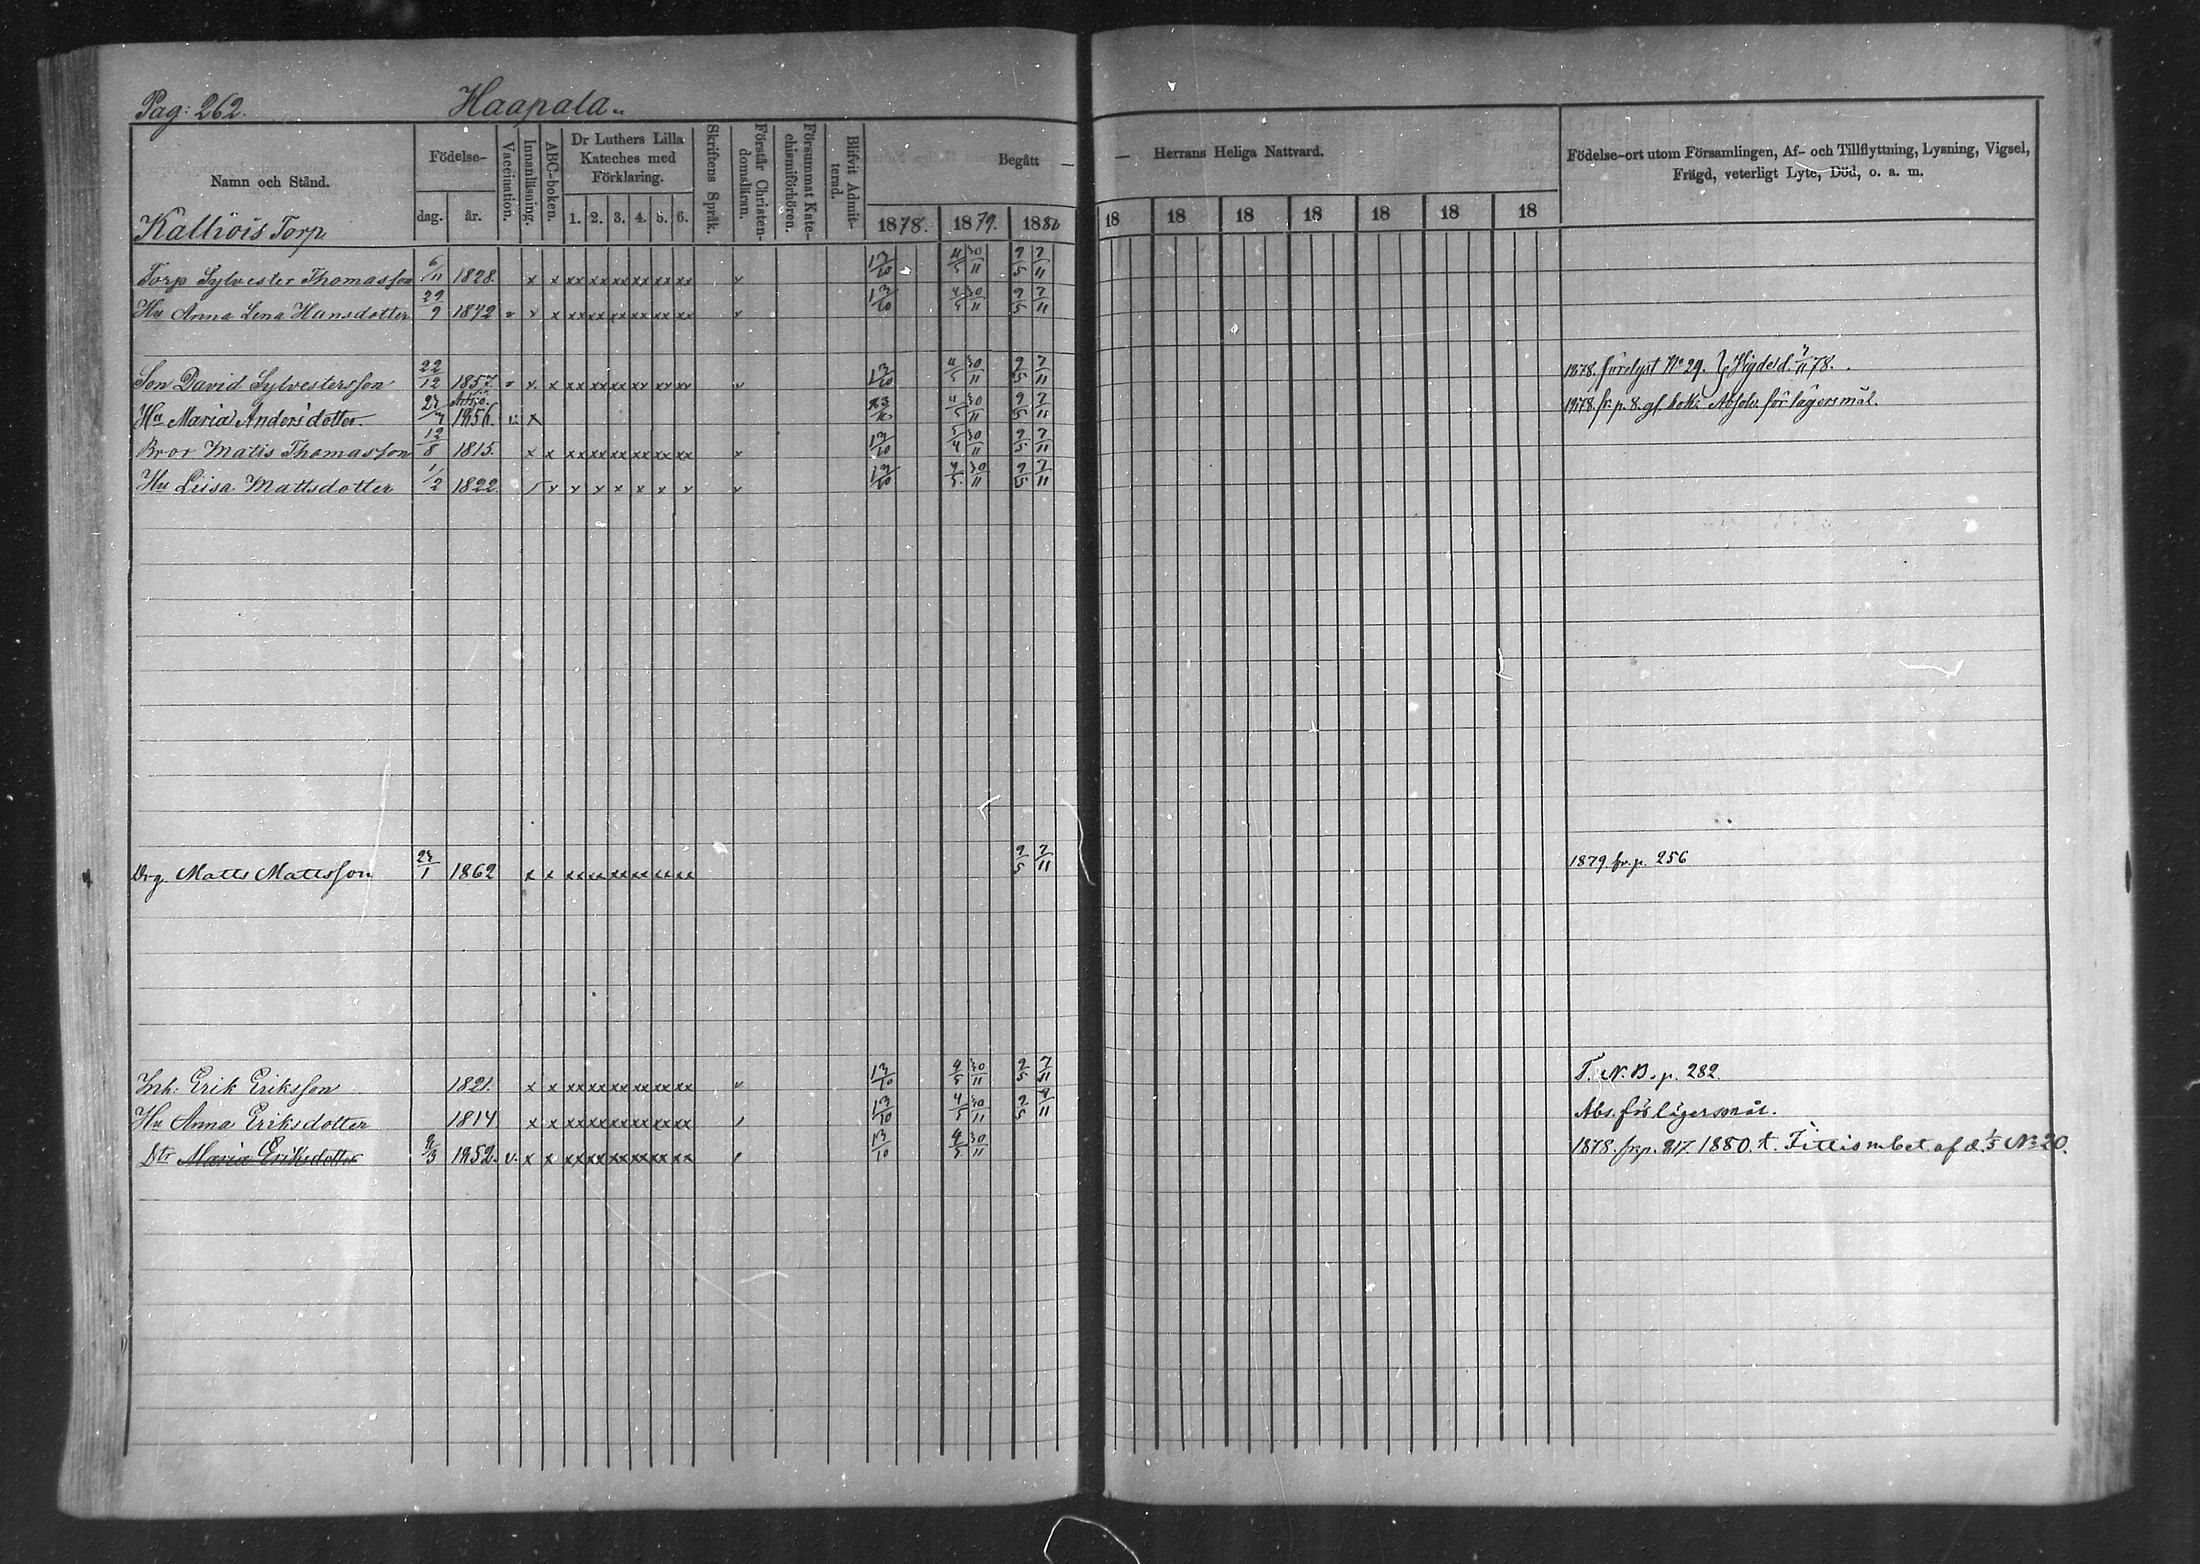 Pag: 262. Haapala
Namn och Stånd. Födelse- dag. år. Vaccination. Innanläsning. ABC-boken. Dr Luthers Lilla Kateches med Förklaring. 1. 2. 3. 4. 5. 6. Skriftens Språk. Förstår Christendomsläran. Försummat Katechismiförhören. Blifvit Admitterad. Begått — — Herrans Heliga Nattvard. Födelse-ort utom Församlingen, Af- och Tillflyttning, Lysning, Vigsel, Frägd, veterligt Lyte, Död, o. a. m.
1878. 1879. 1880 18 18 18 18 18 18 18
Kalliois Torp
Torp Sylvester Thomasson 6/11 1828. x x xx xx xx xx xx xx v 13/10 4/5 30/11 9/5 7/11
Hu Anna Lena Hansdotter 29/9 1842 v v x xx xx xx xx xx xx v 13/10 4/5 30/11 9/5 7/11
Son David Sylvestersson 22/12 1857. v x x xx xx xx xx xx xx v 13/10 4/5 30/11 9/5 7/11 1878. N:o 29.
Hu Maria Andersdotter 1856. v. x 4/5 30/11 9/5 7/11 1878. fr. p. 8. Absolv. för lägersmål.
Bror Matts Thomasson 12/8 1815. x x xx xx xx xx xx xx v 13/10 30/11 9/5 7/11
Hu Liisa Mattsdotter 1/2 1822 v v v x x x v v 13/10 4/5 30/11 9/5 7/11
Drg. Matts Mattsson 1862 x x xx xx xx xx xx xx 9/5 7/11 1879 fr. p. 256
Inh: Erik Eriksson 1821. x x xx xx xx xx xx xx v 13/10 4/5 30/11 9/5 7/11 T. N. B. p. 282.
Hu Anna Eriksdotter 1814 x x xx xx xx xx xx xx 13/10 4/5 30/11 9/5 7/11 Abs. för lägersmål.
Dtr Maria Eriksdotter 1852. v. x x xx xx xx xx xx xx 13/10 4/5 30/11 1878. fr. p. 1880. t. af d. N:o 20.